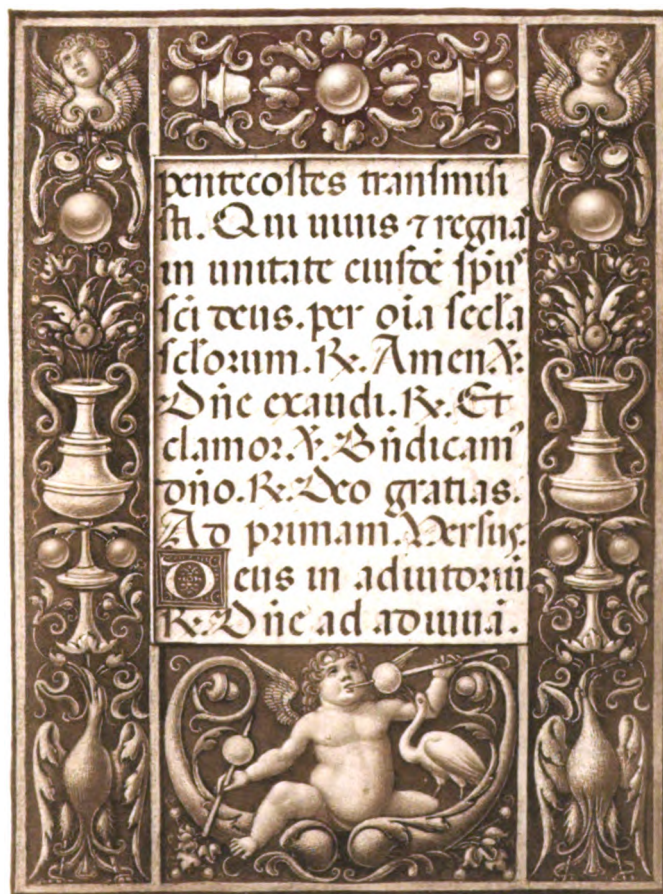 pentecostes transmisi
sti. Qui uiuis ⁊ regnas
in unitate eiusdē sp̄us
sc̄i deus. per oīa secl̄a
scl̄orum. ℟. Amen. ℣.
Dn̄e exaudi. ℟. Et
clamor. ℣. Bn̄dicam⁹
dn̄o. ℟. Deo gratias.
Ad primam. Versus.
Deus in adiutoriū.
℟. Dn̄e ad adiuuā.